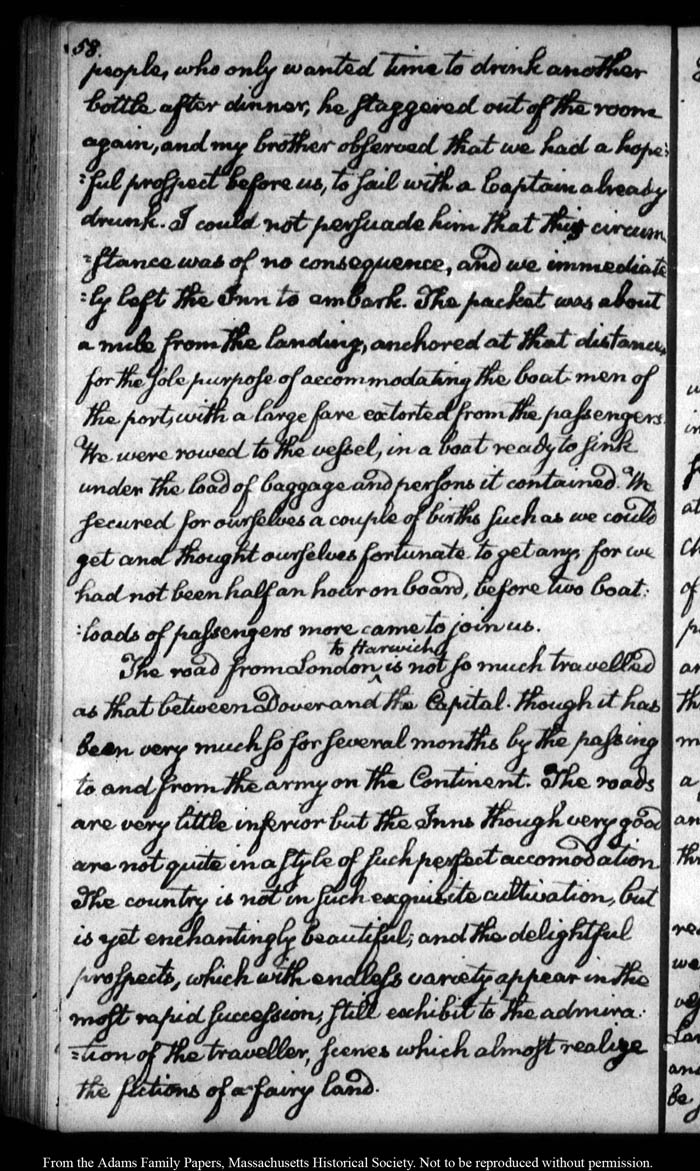 58.
people, who only wanted time to drink another
bottle after dinner; he staggered out of the room
again, and my brother observed that we had a hope:
:ful prospect before us, to sail with a Captain already
drunk. I could not persuade him that this circum
:stance was of no consequence, and we immediate
:ly left the Inn to embark. The packet was about
a mile from the landing, anchored at that distance,
for the sole purpose of accommodating the boat-men of
the port, with a large fare extorted from the passengers.
We were rowed to the vessel, in a boat ready to sink
under the load of baggage and persons it contained. We
secured for ourselves a couple of births such as we could
get and thought ourselves fortunate to get any; for we
had not been half an hour on board, before two boat:
:loads of passengers more came to join us.
to Harwich
The road from London ^ is not so much travelled
as that between Dover and the Capital. though it has
been very much so for several months by the passing
to and from the army on the Continent. The roads
are very little inferior but the Inns though very good
are not quite in a style of such perfect accomodation
The country is not in such exquisite cultivation, but
is yet enchantingly beautiful; and the delightful
prospects, which with endless variety appear in the
most rapid succession, still exhibit to the admira:
:tion of the traveller, scenes which almost realize
the fictions of a fairy land.
From the Adams Family Papers, Massachusetts Historical Society. Not to be reproduced without permission.